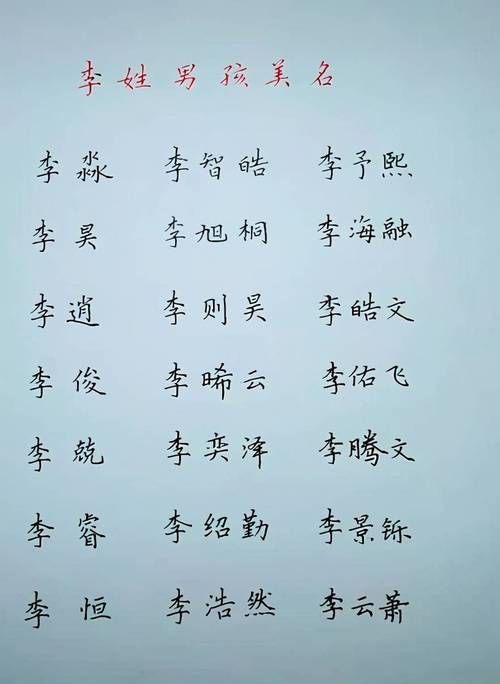 李姓男孩美名
李淼 李智皓 李予熙
李昊 李旭桐 李海融
李逍 李则昊 李皓文
李俊 李晞云 李佑飞
李兢 李奕泽 李腾文
李睿 李绍勤 李景铄
李恒 李浩然 李云萧